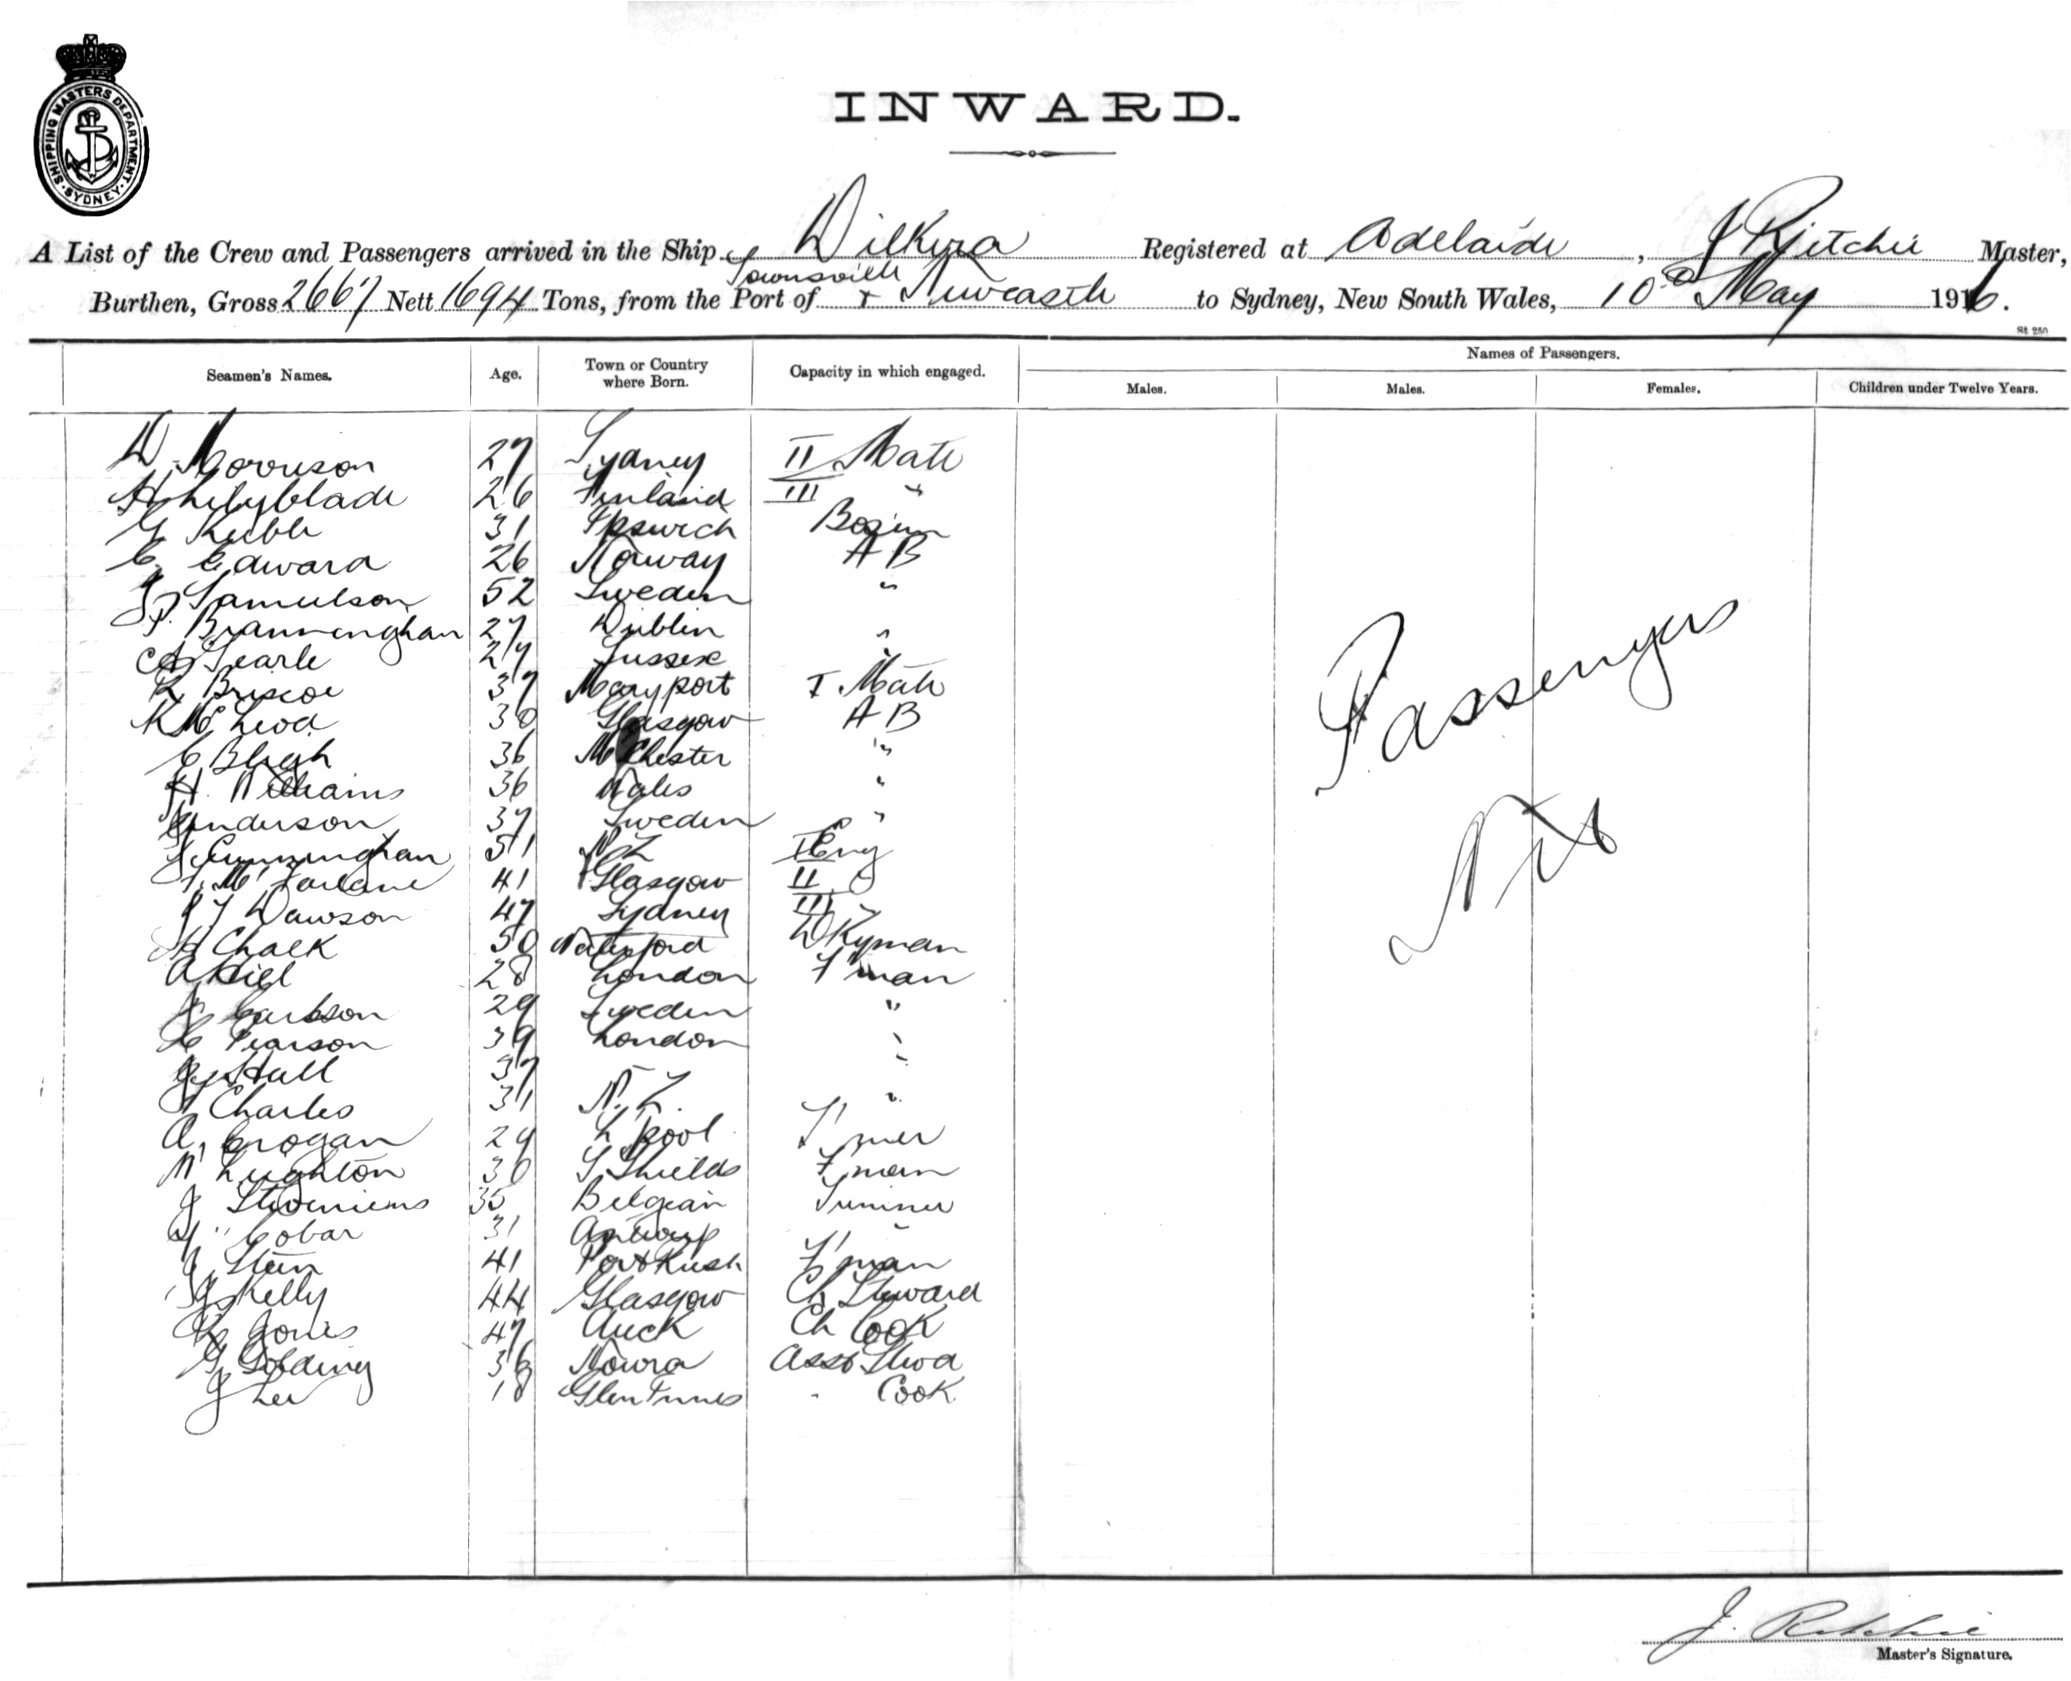 SHIPPING MASTERS DEPARTMENT · SYDNEY ·
INWARD.
A List of the Crew and Passengers arrived in the Ship Dilkera Registered at Adelaide, J Ritchie Master,
Townsville
Burthen, Gross 2667 Nett 1694 Tons, from the Port of + Newcastle to Sydney, New South Wales, 10th May 1916.
St 250
Seamen's Names. Age. Town or Country where Born. Capacity in which engaged. Names of Passengers.
Males. Males. Females. Children under Twelve Years.
D. Morrison 27 Sydney II Mate
H Lilyblade 26 Finland III "
G Kibble 31 Ipswich Bosun
C. Edward 26 Norway A B
J Samuelson 52 Sweden "
P. Branningham 27 Dublin "
CA Searle 27 Sussex "
R Briscoe 37 Maryport I Mate
K McLeod 30 Glasgow A B
C Bligh 36 M'Chester "
H. Williams 36 Wales "
Anderson 37 Sweden "
J Cunningham 51 N Z I Eng
J. McFarlane 41 Glasgow II
J J Dawson 47 Sydney III
H Chalk 50 Waterford Dkyman
A Hill 28 London F'man
J Carlsson 29 Sweden "
C Pearson 39 London "
Hall 37 "
J Charles 31 N. Z. "
A. Crogan 29 L'pool T'mer
W Leighton 30 S Shields F'man
J 35 Belgian Trimmer
Cobar 31 Antwerp "
J. Stein 41 Portrush F'man
J Kelly 44 Glasgow Ch Steward
R Jones 47 Auck Ch Cook
G Golding 36 Nowra Asst Stwd
J Lee 18 Glen Innes " Cook
Passengers
Nil
J. Ritchie
Master's Signature.